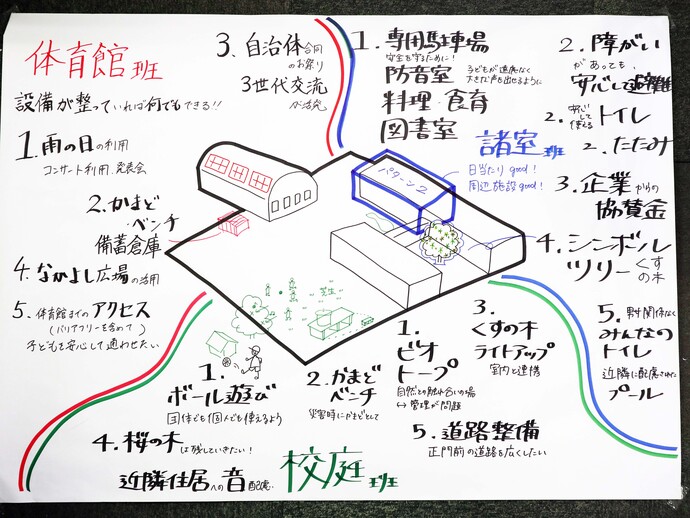 体育館班
設備が整っていれば何でもできる!!
1.雨の日の利用
コンサート利用、発表会
2.かまど
・ベンチ
備蓄倉庫
3.自治体合同
のお祭り
3世代交流
が活発
4.なかよし広場の活用
5.体育館までのアクセス
(バリアフリーを含めて)
子どもを安心して通わせたい
1.専用駐車場
安全を守るために!
防音室
子どもが遠慮なく
大きな声も出せるように
料理・食育
図書室
諸室班
日当たりgood!
周辺施設good!
パターン2
2.障がい
があっても、
安心して避難
2.安心して使えるトイレ
2.たたみ
3.企業からの
協賛金
4.シンボル
ツリーくすの木
5.関係なく
みんなの
トイレ
近隣に配慮された
プール
芝生
1.
ボール遊び
団体でも個人でも使えるよう
2.かまど
ベンチ
災害時にかまどとして
1.
ビオ
トープ
自然との触れ合いの場
↔管理が問題
3.
くすの木
ライトアップ
室内と連携
4.桜の木は残していきたい!
5.道路整備
正門前の道路を広くしたい
近隣住居への音配慮
校庭班